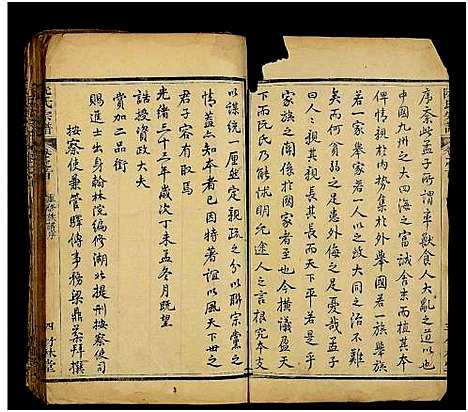 序奈此孟子所謂率獸食人大亂之道以也
中國九州之大四海之富誠舍末而植其本
俾情熱於內势集於外舉國若一族舉族
若一家舉家若一人以之致大同之治不難
矣而何貧弱之足患外侮之足憂哉孟子
曰人人親其親長其長而天下平若是乎
族之關係於國家者至也今橫議盈天
下而阮氏乃能怵明先途人之言根究本支
以牒統一厘然定親疏之分以聯宗黨之
情蓋亦知本者已因特著誼以風天下世之
君子容有取焉
光緒三十三年歲次丁未孟冬月既望
誥授資政大夫
賞加二品銜
賜進士出身翰林院編修湖北提刑按察使司
按察使兼管驛傳事務梁鼎芬拜撰
阮氏宗譜
四 竹林堂